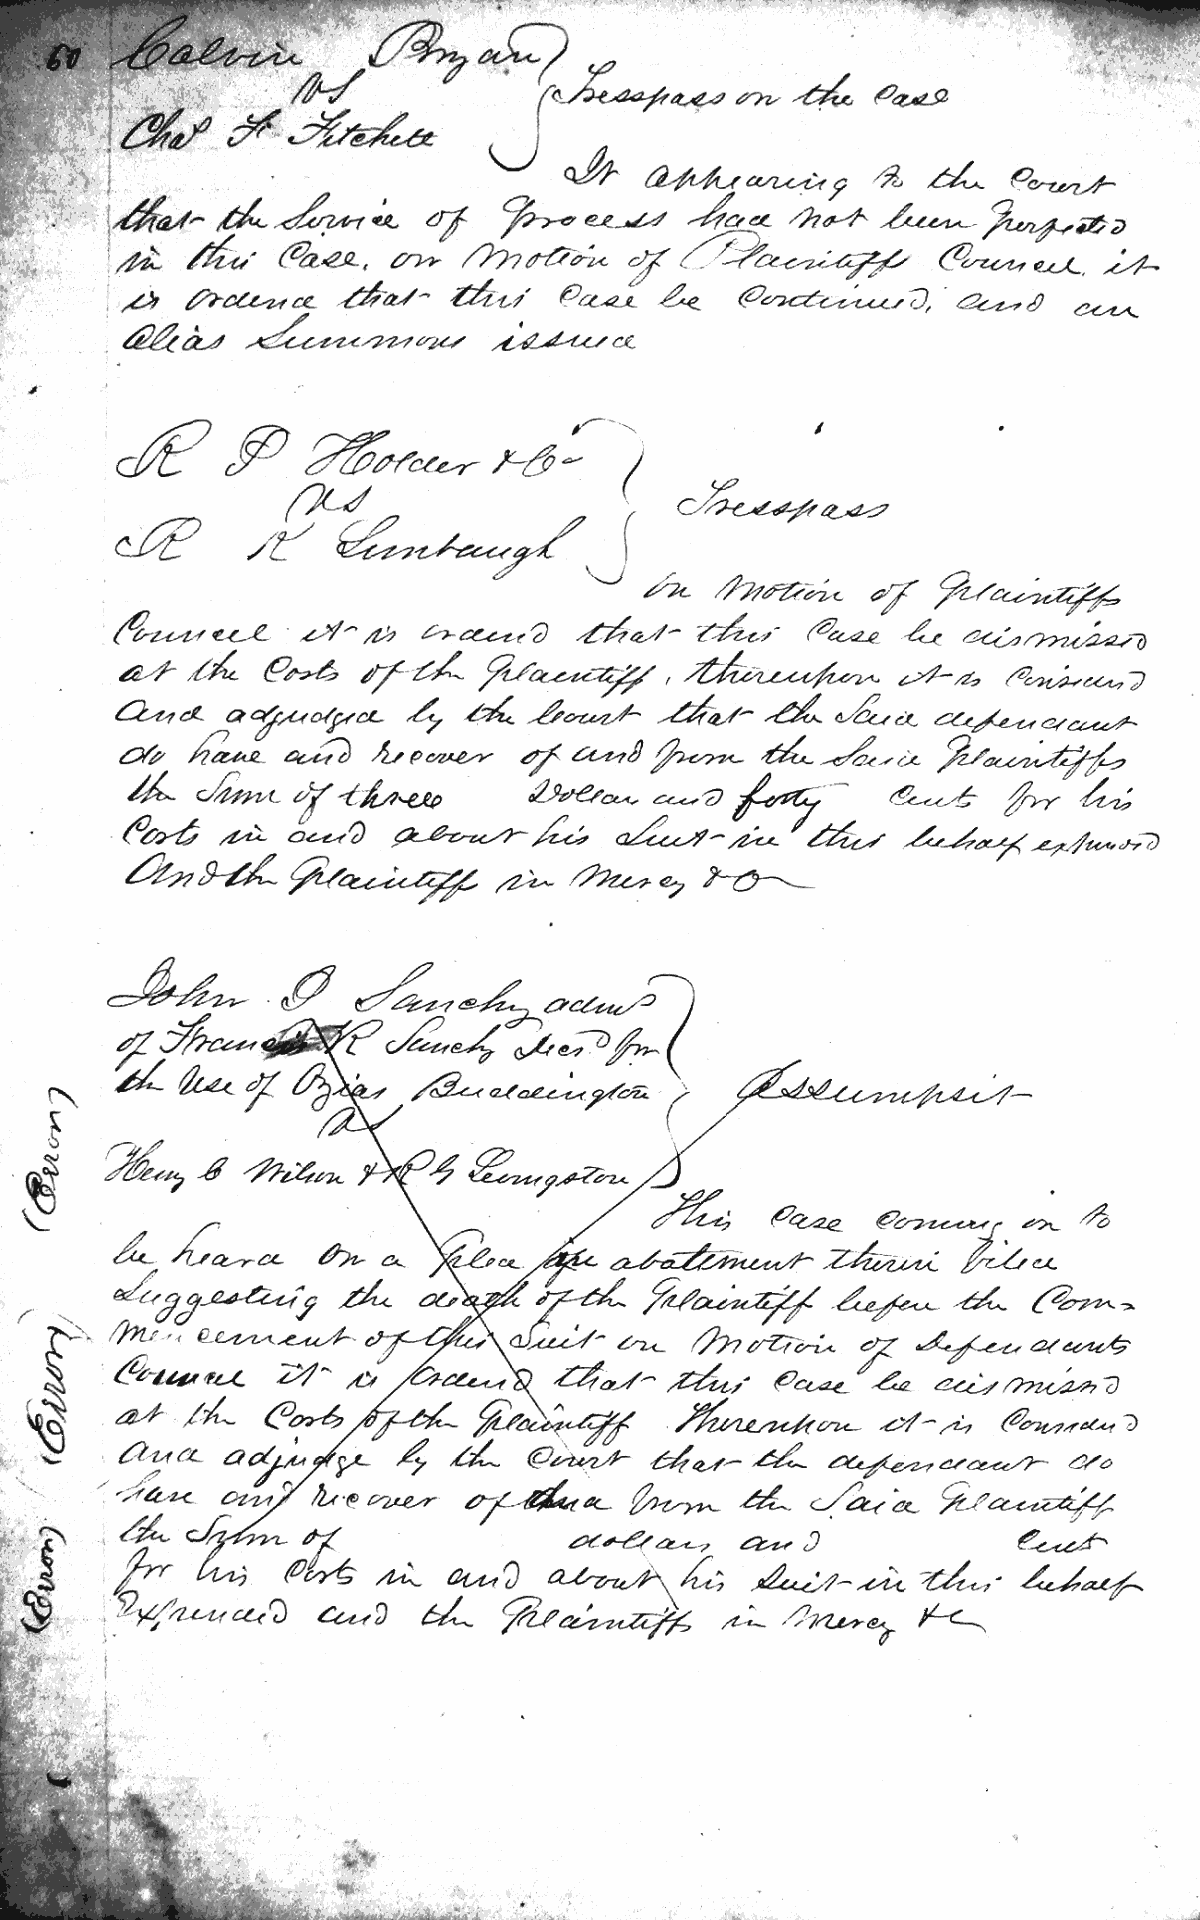 60 Calvin Bryan
vs
Tresspass on the Case
Chas F. Fitchett
It appearing to the Court
that the Service of Process had not been perfected
in this Case. on Motion of Plaintiffs Councel. it
is ordered that this Case be Continued, and an
Alias Summons issued
R P Holder & Co
vs
Tresspass
R K Limbaugh
On Motion of Plaintiffs
Councel it is ordered that this Case be dismissed
at the Costs of the Plaintiff, thereupon it is Considered
And adjudged by the Court that the Said defendant
do have and recover of and from the Said Plaintiffs
the Sum of three Dollars and forty Cents for his
Costs in and about his Suit in this behalf expended
And the Plaintiff in Mercy &c
John P Sanchy admr
of Francis R Sanchy Decd for
the Use of Ozias Buddington
Assumpsit
vs
Henry C Wilson & R G Livingston
This Case coming on to
be heard On a Plea in abatement therein filed
Suggesting the death of the Plaintiff before the Com=
mencement of this Suit on Motion of Defendants
Councel it is ordered that this Case be dismissed
at the Costs of the Plaintiff Thereupon it is Considered
And adjudge by the Court that the defendant do
have and recover of and from the Said Plaintiff
the Sum of dollars and Cents
for his Costs in and about his Suit in this behalf
Expended and the Plaintiffs in Mercy &c
(Erron)
(Erron)
(Erron)